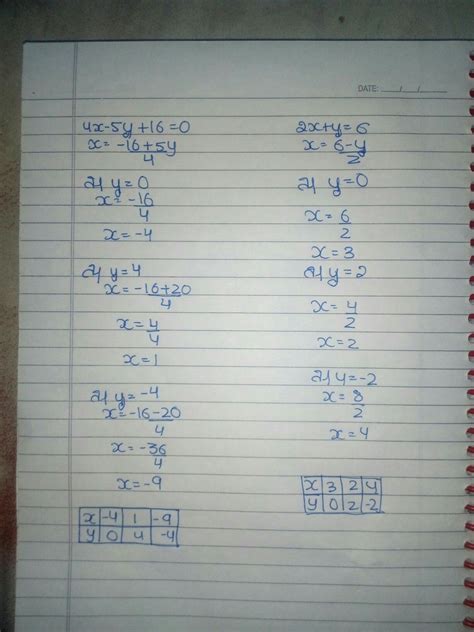 DATE: __/__/__
4x-5y+16=0
x= -16+5y
4
y=0
x= -16
4
x= -4
y=4
x= -16+20
4
x= 4
4
x=1
y= -4
x= -16-20
4
x= -36
4
x= -9
x -4 1 -9
y 0 4 -4
2x+y=6
x= 6-y
2
y=0
x= 6
2
x=3
y=2
x= 4
2
x=2
y=-2
x= 8
2
x=4
x 3 2 4
y 0 2 -2